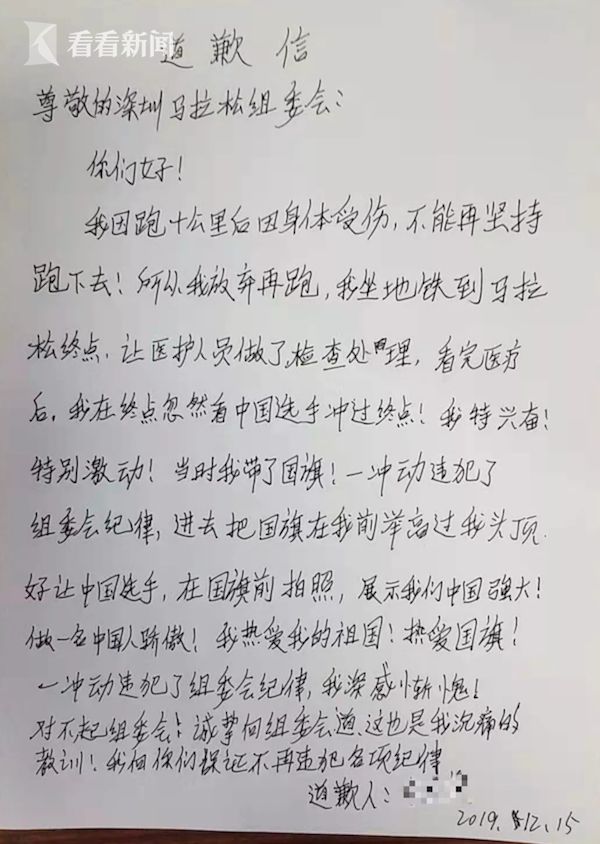 看看新闻
道歉信
尊敬的深圳马拉松组委会:
你们好!
我因跑十公里后因身体受伤,不能再坚持
跑下去!所以我放弃再跑,我坐地铁到马拉
松终点.让医护人员做了检查处理,看完医疗
后,我在终点忽然看中国选手冲过终点!我特兴奋!
特别激动!当时我带了国旗!一冲动违犯了
组委会纪律,进去把国旗在我前举高过我头顶.
好让中国选手,在国旗前拍照,展示我们中国强大!
做一名中国人骄傲!我热爱我的祖国!热爱国旗!
一冲动违犯了组委会纪律,我深感惭愧!
对不起组委会!诚挚向组委会道.这也是我沉痛的
教训!我向你们保证不再违犯各项纪律
道歉人:
2019.12.15